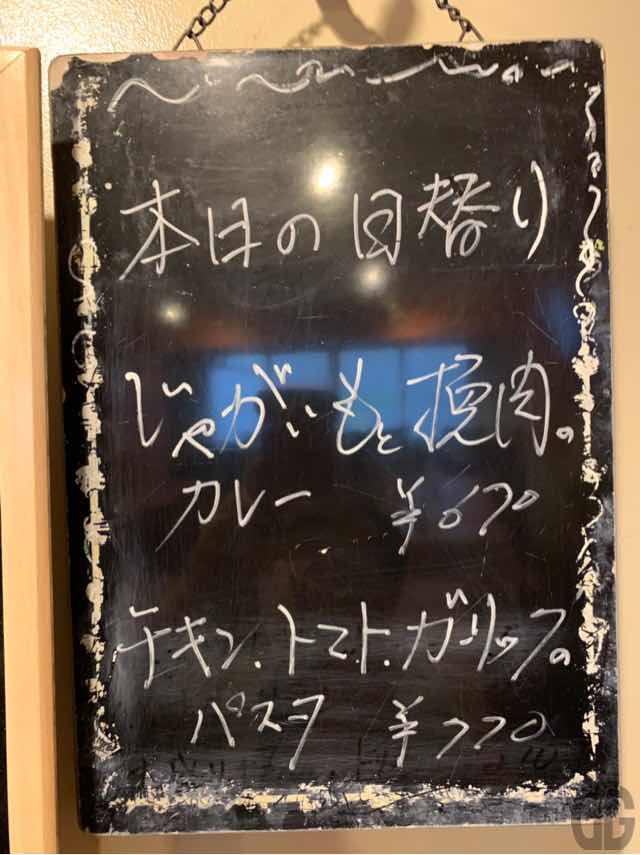 本日の日替り
じゃがいもと挽肉の
カレー ¥670
チキン、トマト、ガーリックの
パスタ ¥770
GG